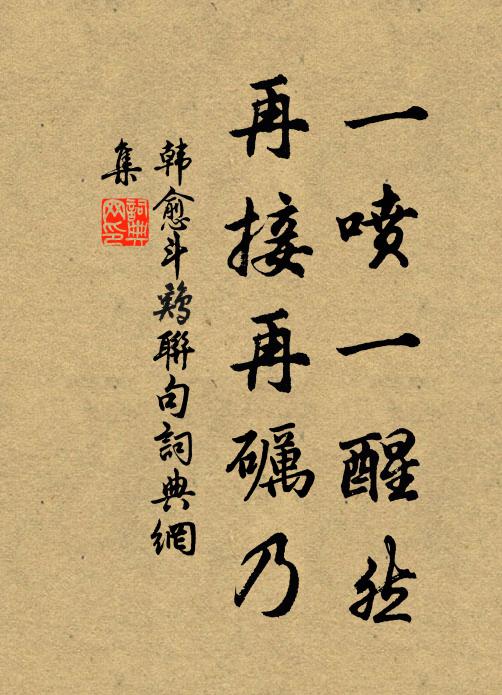 一喷一醒然
再接再礪乃
韩愈斗鷄聯句詞典網
集
詞典网印